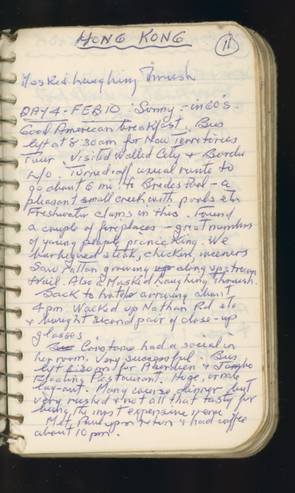 HONG KONG
11
Masked Laughing Thrush
DAY 4 - FEB 10 Sunny - in 60's.
Good American breakfast. Bus
left at 8:30 am for New Territories
Tour. Visited Walled City & Border
H/O. Turned off usual route to
go about 6 mi to Brides Pool - a
pleasant small creek with pools etc
Freshwater clams in this. Found
a couple of fireplaces - great numbers
of young people picnicking. We
barbequed steak, chicken, weiners
Saw growing along upstream
trail. Also a Masked Laughing Thrush.
Back to hotel arriving about
4 pm. Walked up Nathan Rd etc
& bought second pair of close-up
glasses
had a social in
her room. Very successful. Bus
left 6:30 pm for Aberdeen & Jumbo
Floating Restaurant. Huge, ornate
Many course dinner but
very rushed & not all that tasty for
being the most expensive
Met Paul upon return & had coffee
about 10 pm.